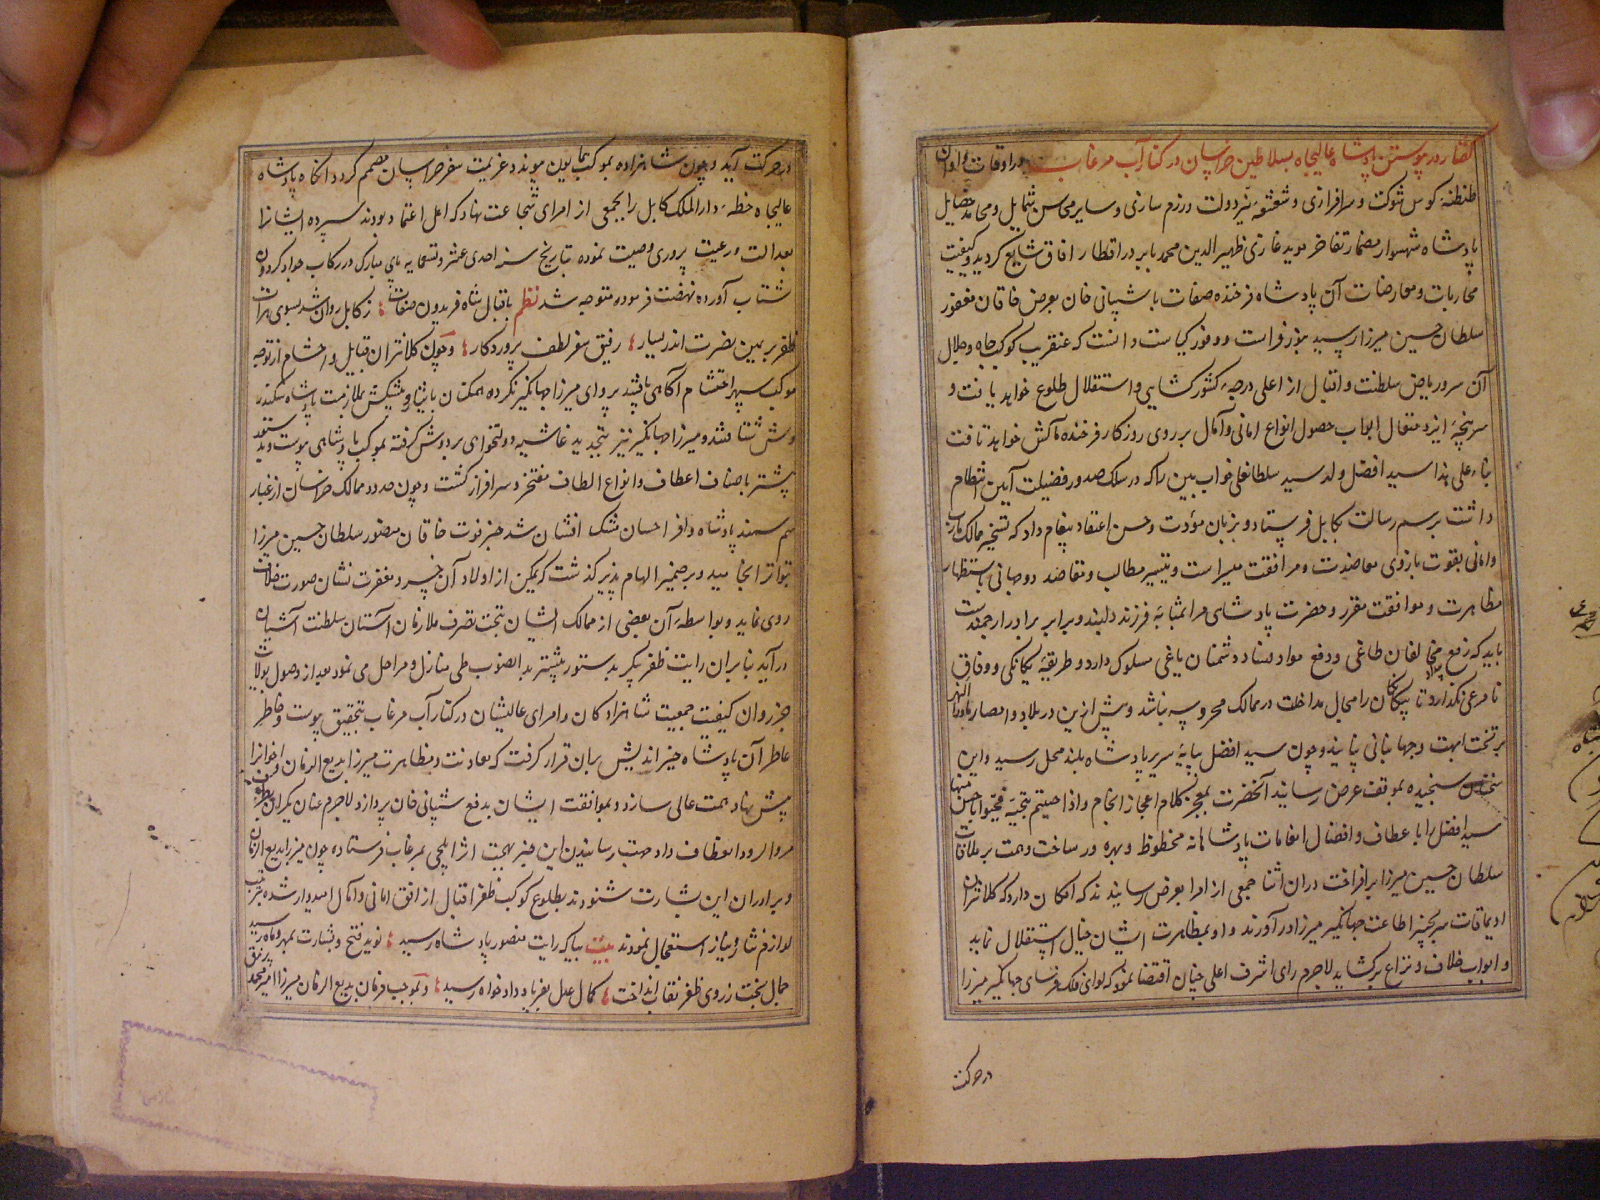 گفتار در پیوستن پادشاه عالیجاه بسلاطین خراسان در کنار آب مرغاب در اوقات و اوان
طنطنهٔ کوس شوکت و سرافرازی و شعشعهٔ نیر دولت و رزم سازی و سایر محاسن شمایل و محامد خصایل
پادشاه شهسوار مضمار تفاخر موید غازی ظهیر الدین محمد بابر در اقطار افاق شایع کردید و کیفیت
محاربات و معارضات آن پادشاه فرخنده صفات با شیبانی خان بعرض خاقان مغفور
سلطان حسین میرزا رسید بنور فراست و وفور کیاست دانست که عنقریب کوکب جاه و جلال
آن سرور ریاض سلطنت و اقبال از اعلی درجهٔ کشور کشایی و استقلال طلوع خواهد یافت و
سرپنجهٔ ایزد متعال ابواب حصول انواع امانی و آمال بر روی روزکار فرخنده مآلش خواهد تافت
بناء علی هذا سید افضل ولد سید سلطانعلی خواب بین را که در سلک صدور فضیلت آیین انتظام
داشت برسم رسالت بکابل فرستاد و بزبان مؤدت و حسن اعتقاد پیغام داد که تسخیر ممالک
و امانی بقوت بازوی معاضدت و مرافقت میسر است و تیسیر مطالب و مقاصد دوجهانی باستظهار
مظاهرت و موافقت مقرر و حضرت پادشاهی مرا بمثابهٔ فرزند دلبند و برابر برادر ارجمندست
باید که رفع مخالفان طاغی و دفع مواد فساد دشمنان یاغی مسلوک دارد و طریقهٔ یکانکی و وفاق
نامرعی نکذارد تا بیکانکان را مجال مداخلت در ممالک محروسه نباشد و پیش ازین در بلاد و امصار ماوراء النهر
بر تخت ابهت و جهانبانی نپایند و چون سید افضل بپایهٔ سریر پادشاه بلند محل رسید و این
سخنان سنجیده بموقف عرض رسانید آنحضرت بمعجز کلام اعجاز انجام و اذا حییتم بتحیة فحیوا باحسن منها
سید افضل را با عطاف و افضال انعامات پادشاهانه محظوظ و بهره ور ساخت و همت بر ملاقات
سلطان حسین میرزا بر افراخت در ان اثنا جمعی از امرا بعرض رسانیدند که امکان دارد که کلانتران
اویماقات سر بچنبر اطاعت جهانکیر میرزا در آورند و او بمظاهرت ایشان خیال استقلال نماید
و ابواب خلاف و نزاع بر کشاید لاجرم رای اشرف اعلی چنان اقتضا نمود که لوای فلک فرسای جهانکیر میرزا
در حرکت
در حرکت آید و چون شاهزاده بموکب همایون پیوندد عزیمت سفر خراسان مصمم کردد انکاه پادشاه
عالیجاه خطهٔ دار الملک کابل را بجمعی از امرای شجاعت نهاد که اهل اعتماد بودند سپرده ایشانرا
بعدالت و رعیت پروری وصیت نموده بتاریخ سنه احدی عشر و تسعمایه پای مبارک در رکاب جواد کردون
شتاب آورده نهضت فرموده متوجه شد نظم باقبال شاه فریدون صفات ز کابل روان شد بسوی هرات
ظفر بر یمین نصرت اندر یسار رفیق سفر لطف پروردکار و چون کلانتران قبایل و احشام از توجه
موکب سپهر احتشام آکاهی یافتند پروای میرزا جهانکیر نکرده همکنان با نثار و پیشکش بملازمت پادشاه سکندر
وش شتافتند و میرزا جهانکیر نیز بتجدید غاشیه دولتخواهی بر دوش کرفته بموکب پادشاهی پیوست و بدستور
پیشتر باصناف اعطاف و انواع الطاف مفتخر و سرافراز کشت و چون حدود ممالک خراسان از غبار
سم سمند پادشاه وافر احسان مشک افشان شد خبر فوت خاقان منصور سلطان حسین میرزا
بتواتر انجامید و بر ضمیر الهام پذیر کذشت که یمکن از اولاد آن خسرو مغفرت نشان صورت خلاف
روی نماید و بواسطهٔ آن بعضی از ممالک ایشان بتحت تصرف ملازمان آستان سلطنت آشیان
در آید بنابران رایت ظفر پیکر بدستور پیشتر بدانصوب طی منازل و مراحل می نمود بعد از وصول بولایت
جزروان کیفیت جمعیت شاهزادکان و امرای عالیشان در کنار آب مرغاب بتحقیق پیوست و خاطر
عاطر آن پادشاه خیر اندیش بران قرار کرفت که معاونت و مظاهرت میرزا بدیع الزمان و اخوانرا
پیش نهاد همت عالی سازد و بموافقت ایشان بدفع شیبانی خان پردازد لاجرم عنان یکران بطرف
مرو الرود انعطاف داد جهت رسانیدن این خبر بهجت اثر ایلچی بمرغاب فرستاد و چون میرزا بدیع الزمان
و برادران این بشارت شنودند بطلوع کوکب ظفر اقبال از افق امانی و آمال امیدوار شده بترتیب
لوازم نثار و نیاز استعجال نمودند بیت بیا که رایت منصور پادشاه رسید نوید فتح و بشارت بمهر و ماه رسید
جمال بخت ز روی ظفر نقاب انداخت کمال عدل بفریاد دادخواه رسید و بموجب فرمان بدیع الزمان میرزا امیر محمد